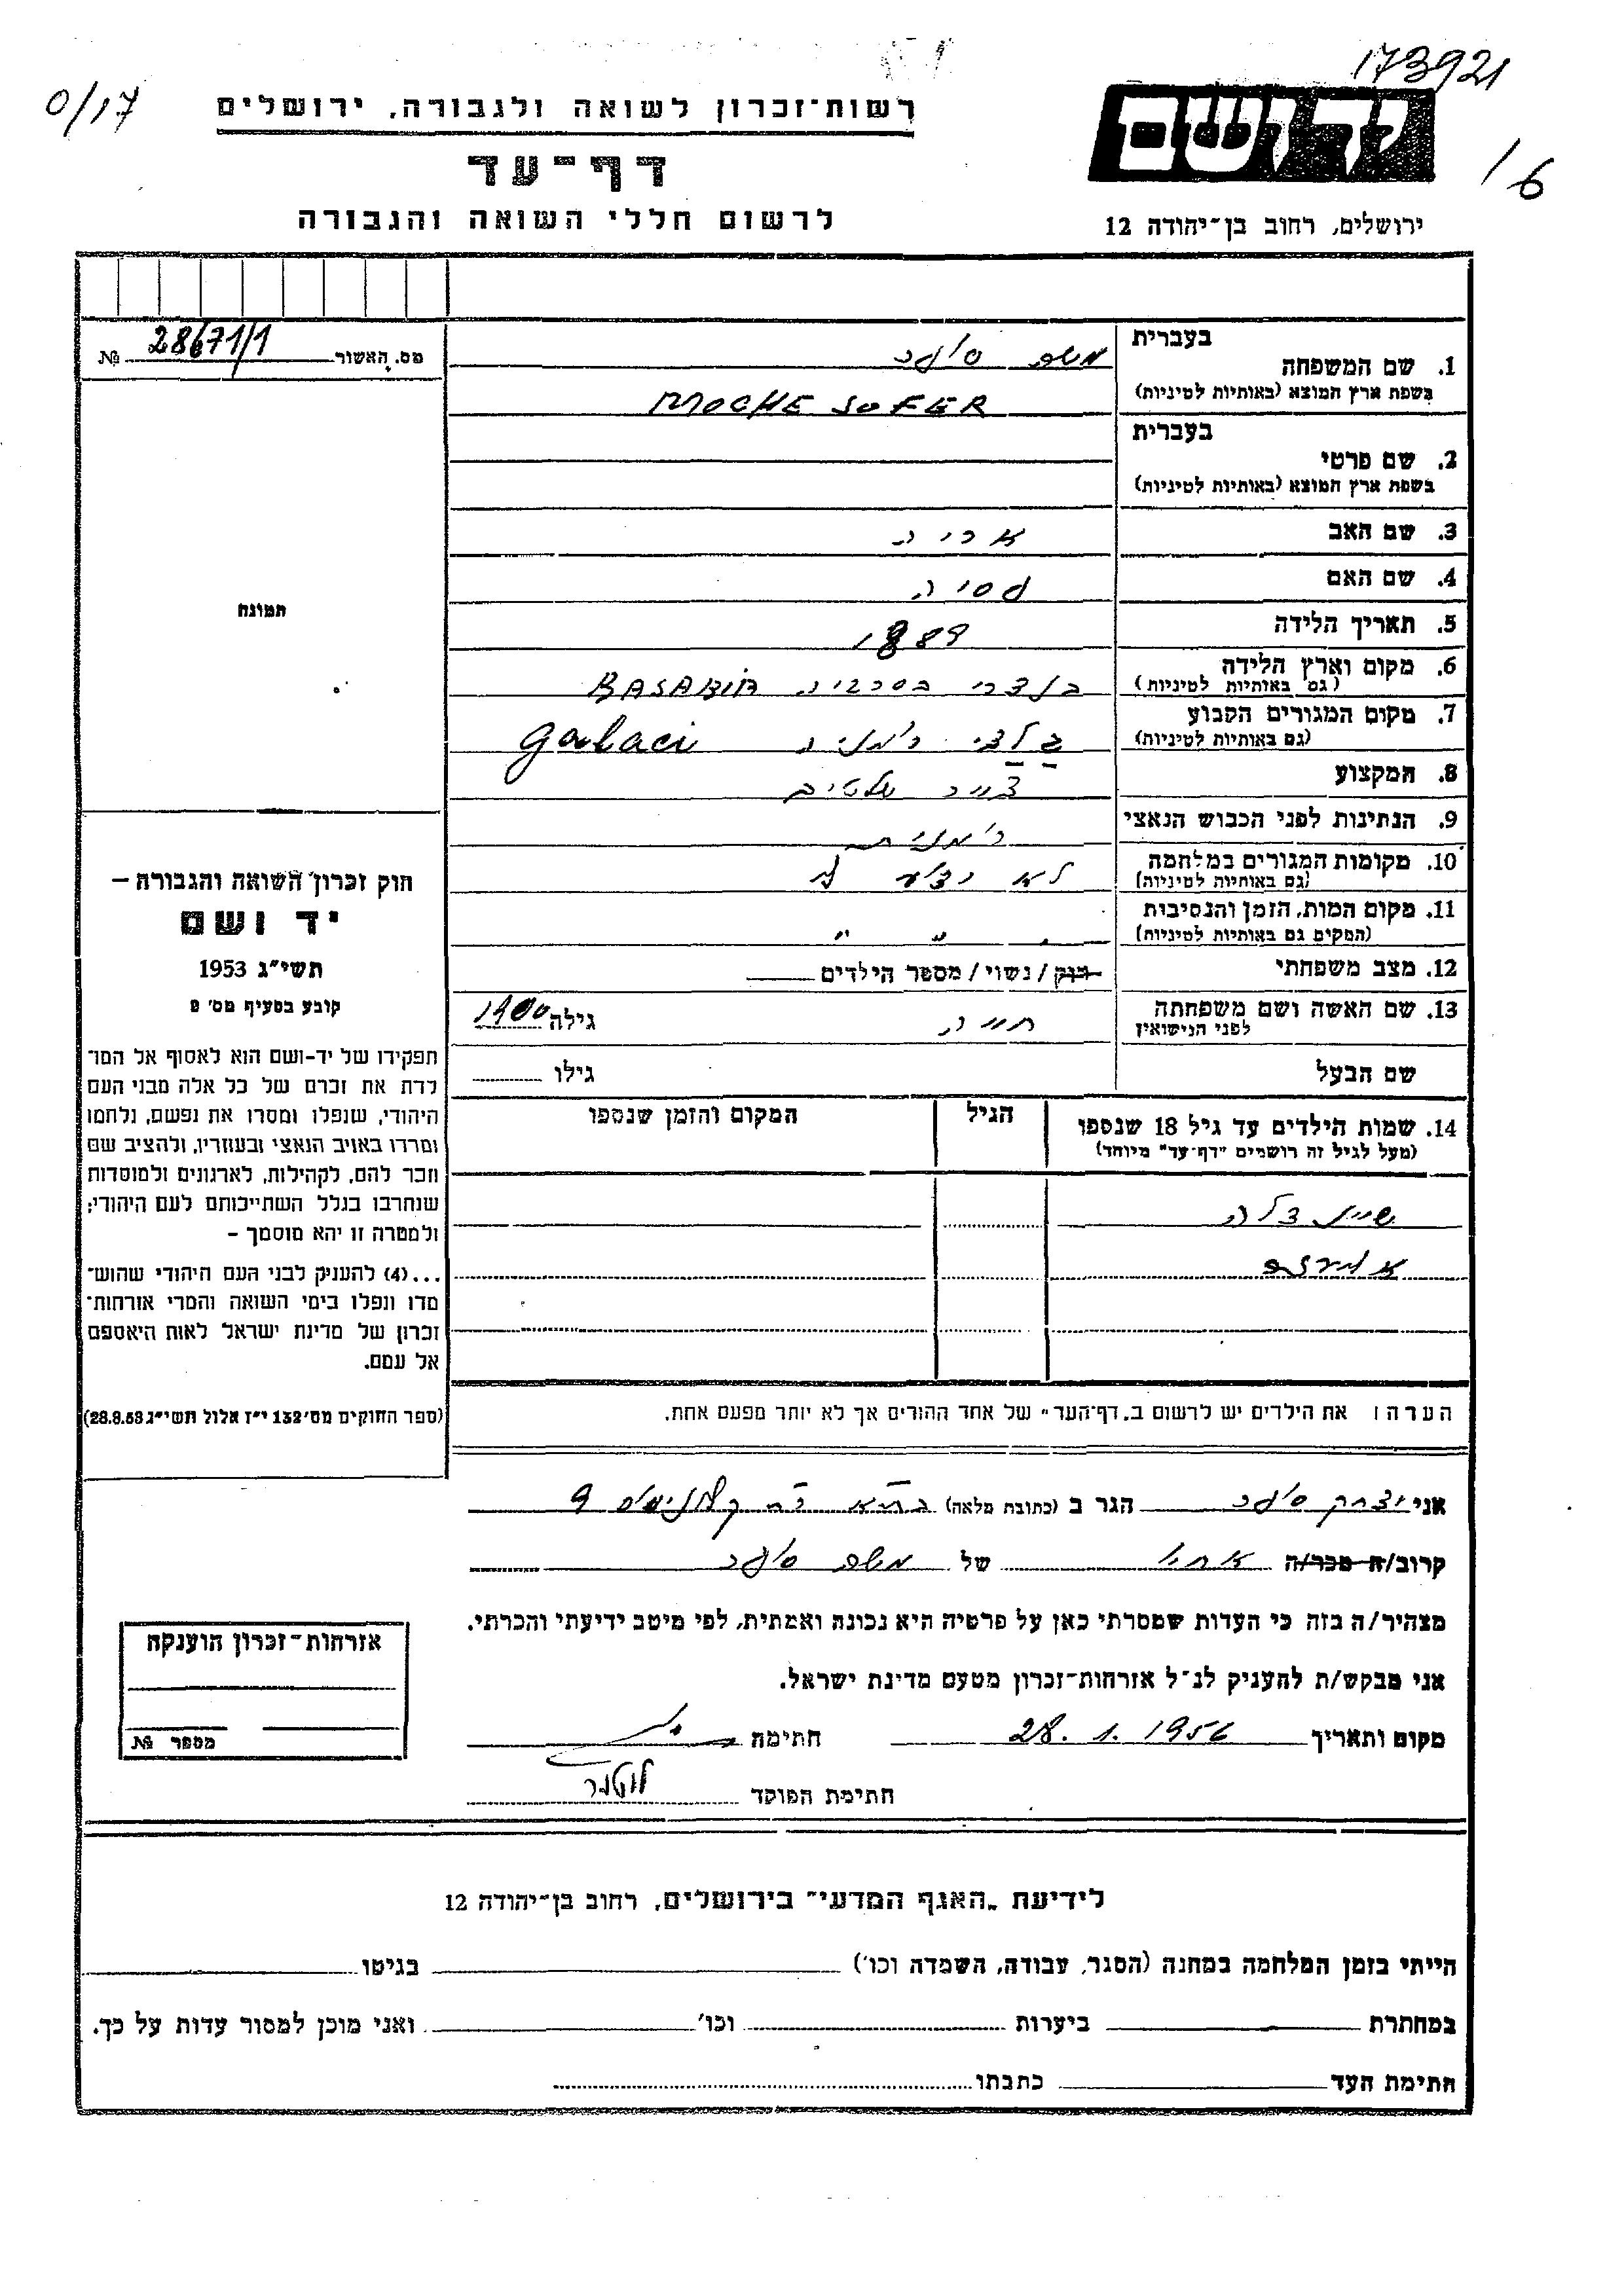 173921
0/17
16
רשות־זכרון לשואה ולגבורה, ירושלים
דף־עד
לרשום חללי השואה והגבורה
יד ושם
ירושלים, רחוב בן־יהודה 12
מס. האשור 28671/1 №
תמונה
1. שם המשפחה
בעברית משה סופר
בשפת ארץ המוצא (באותיות לטיניות) MOCHE SOFER
2. שם פרטי
בעברית
בשפת ארץ המוצא (באותיות לטיניות)
3. שם האב אריה
4. שם האם אסיה
5. תאריך הלידה 1889
6. מקום וארץ הלידה בנדרי בסרביה BASABIA
(גם באותיות לטיניות)
7. מקום המגורים הקבוע גלצי רומניה Galaci
(גם באותיות לטיניות)
8. המקצוע צייר שלטים
9. הנתינות לפני הכבוש הנאצי רומנית
10. מקומות המגורים במלחמה לא ידוע לי
(גם באותיות לטיניות)
11. מקום המות, הזמן והנסיבות " " "
(המקום גם באותיות לטיניות)
12. מצב משפחתי רוק / נשוי / מספר הילדים
13. שם האשה ושם משפחתה חייה גילה 1900
לפני הנישואין
שם הבעל גילו
14. שמות הילדים עד גיל 18 שנספו הגיל המקום והזמן שנספו
(מעל לגיל זה רושמים "דף־עד" מיוחד)
הערה: את הילדים יש לרשום ב„דף־העד" של אחד ההורים אך לא יותר מפעם אחת.
חוק זכרון השואה והגבורה –
יד ושם
תשי"ג 1953
קובע בסעיף מס' 2
תפקידו של יד-ושם הוא לאסוף אל המו־
לדת את זכרם של כל אלה מבני העם
היהודי, שנפלו ומסרו את נפשם, נלחמו
ומרדו באויב הנאצי ובעוזריו, ולהציב שם
וזכר להם, לקהילות, לארגונים ולמוסדות
שנחרבו בגלל השתייכותם לעם היהודי;
ולמטרה זו יהא מוסמך –
...(4) להעניק לבני העם היהודי שהוש־
מדו ונפלו בימי השואה והמרי אזרחות־
זכרון של מדינת ישראל לאות היאספם
אל עמם.
(ספר החוקים מס' 132 י"ז אלול תשי"ג 28.8.53)
אני יצחק סופר הגר ב (כתובת מלאה) ת"א רח' קלונימוס 9
קרוב/ה מכר/ה אחיו של משה סופר
מצהיר/ה בזה כי העדות שמסרתי כאן על פרטיה היא נכונה ואמתית, לפי מיטב ידיעתי והכרתי.
אני מבקש/ת להעניק לנ"ל אזרחות־זכרון מטעם מדינת ישראל.
מקום ותאריך 28.1.1956 חתימה
חתימת הפוקד
אזרחות־זכרון הוענקה
מספר №
לידיעת „האגף המדעי" בירושלים, רחוב בן־יהודה 12
הייתי בזמן המלחמה במחנה (הסגר, עבודה, השמדה וכו') בגיטו
במחתרת ביערות וכו' ואני מוכן למסור עדות על כך.
חתימת העד כתבתו